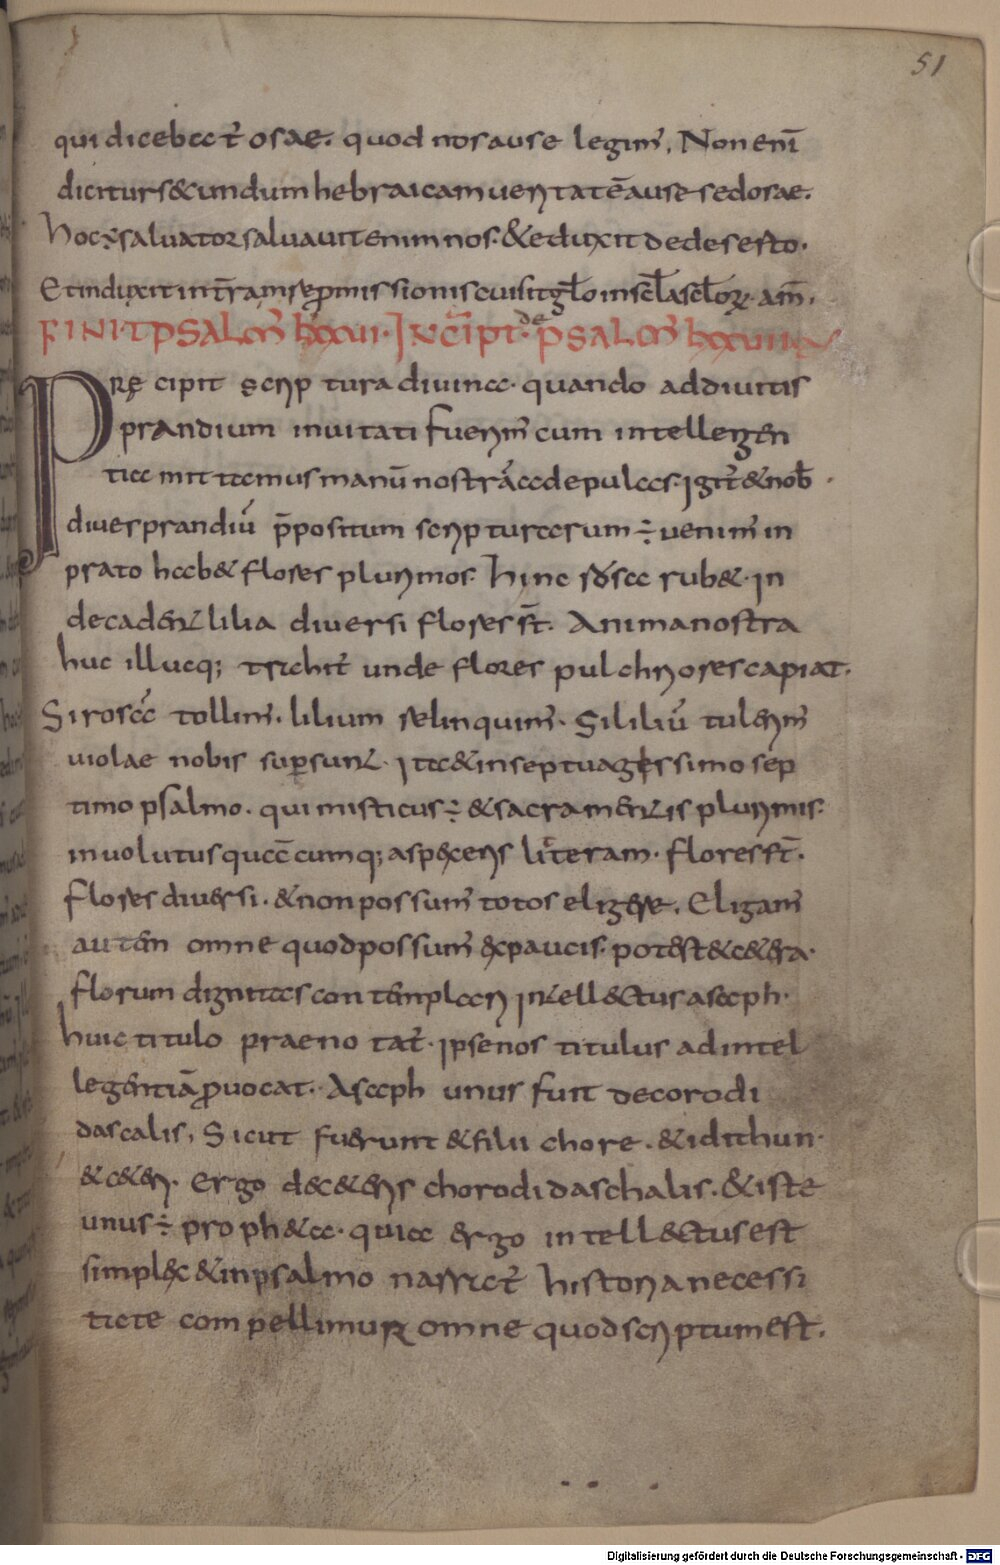 51
qui dicebat̄ osae. quod nos ause legim̄. Non enī
diciturs&undum hebraicam ueritatē ause sed osae.
hoc ÷ saluator saluauit enim nos. & eduxit de deserto.
Et induxit in terram repromissionis cui sit gl̄o in scl̄a scl̄orꝝ. am̄.
FINIT PSALM̄ LXXVI. INCIPT̄ de PSALM̄ LXXVII
PRę cipit scrip tura diuina. quando ad diuitis
prandium inuitati fuerim̄ cum intellegen
tia mittamus manū nostrā ad epulas. igit̄ & nob̄
diues prandiū p̄positum scripturarum ÷ uenim̄ in
prato hab& flores plurimos. hinc rosa rub&. in
de cadent lilia diuersi flores st̄. Anima nostra
huc illucq; trahit̄ unde flores pulchriores capiat.
Si rosā tollim̄. lilium relinquim̄. Si liliū tulerim̄
uiolae nobis supersunt. ita & in septuagessimo sep
timo psalmo. qui misticus ÷ & sacramentis plurimis.
inuolutus quācumq; aspexeris literam. flores st̄.
flores diuersi. & non possum̄ totos eligere. Eligam̄
autem omne quod possum̄ ex paucis. potest & c&era
florum dignitas contemplari intellectus asaph.
huic titulo praenotat̄. ipse nos titulus ad intel
legentiā prouocat. Asaph unus fuit de corodi
dascalis, Sicut fuerunt & filii chore. & idithun.
& c&eri. Ergo de c&eris chorodidaschalis. & iste
unus ÷ proph&a. quia ergo intellectus est
simplex & in psalmo narrat̄ historia necessi
tate compellimur omne quod scriptum est.
Digitalisierung gefördert durch die Deutsche Forschungsgemeinschaft - DFG